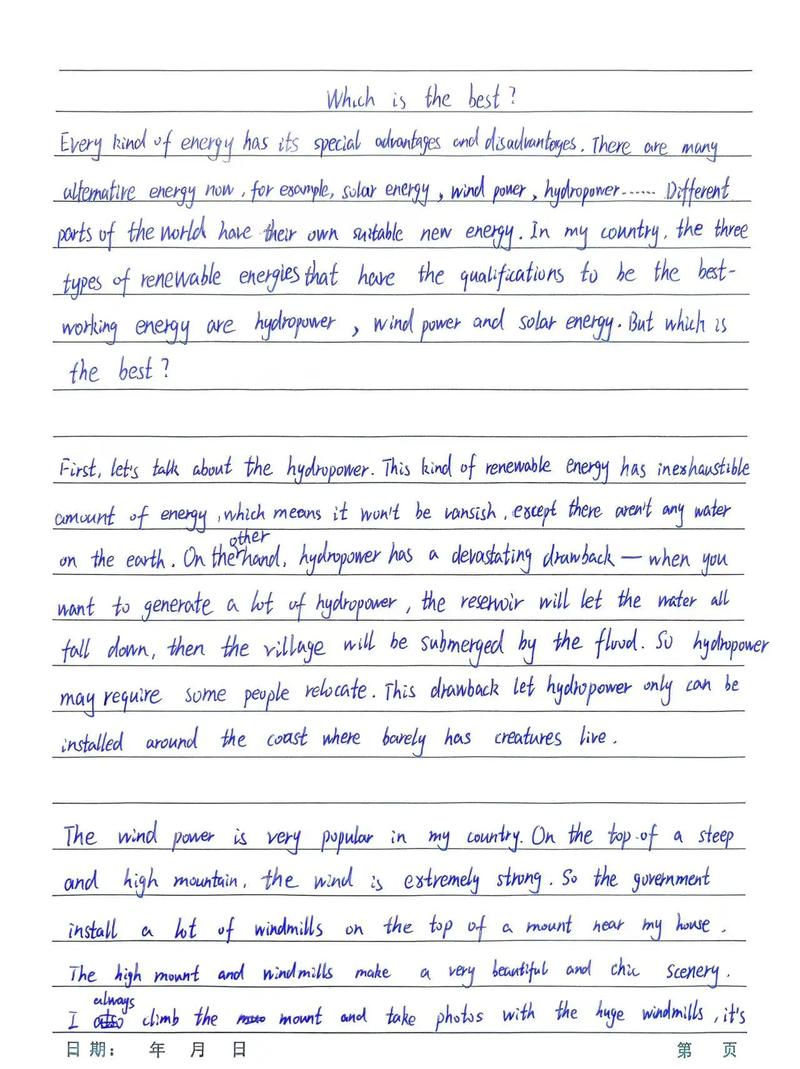 Which is the best?
Every kind of energy has its special advantages and disadvantages. There are many
alternative energy now, for example, solar energy, wind power, hydropower...... Different
parts of the world have their own suitable new energy. In my country, the three
types of renewable energies that have the qualifications to be the best-
working energy are hydropower, wind power and solar energy. But which is
the best?
First, let's talk about the hydropower. This kind of renewable energy has inexhaustible
amount of energy, which means it won't be vansish, except there aren't any water
on the earth. On the other hand, hydropower has a devastating drawback — when you
want to generate a lot of hydropower, the reservoir will let the water all
fall down, then the village will be submerged by the flood. So hydropower
may require some people relocate. This drawback let hydropower only can be
installed around the coast where barely has creatures live.
The wind power is very popular in my country. On the top of a steep
and high mountain, the wind is extremely strong. So the government
install a lot of windmills on the top of a mount near my house.
The high mount and windmills make a very beautiful and chic scenery.
I always climb the mount and take photos with the huge windmills, it's
日期: 年 月 日 第 页